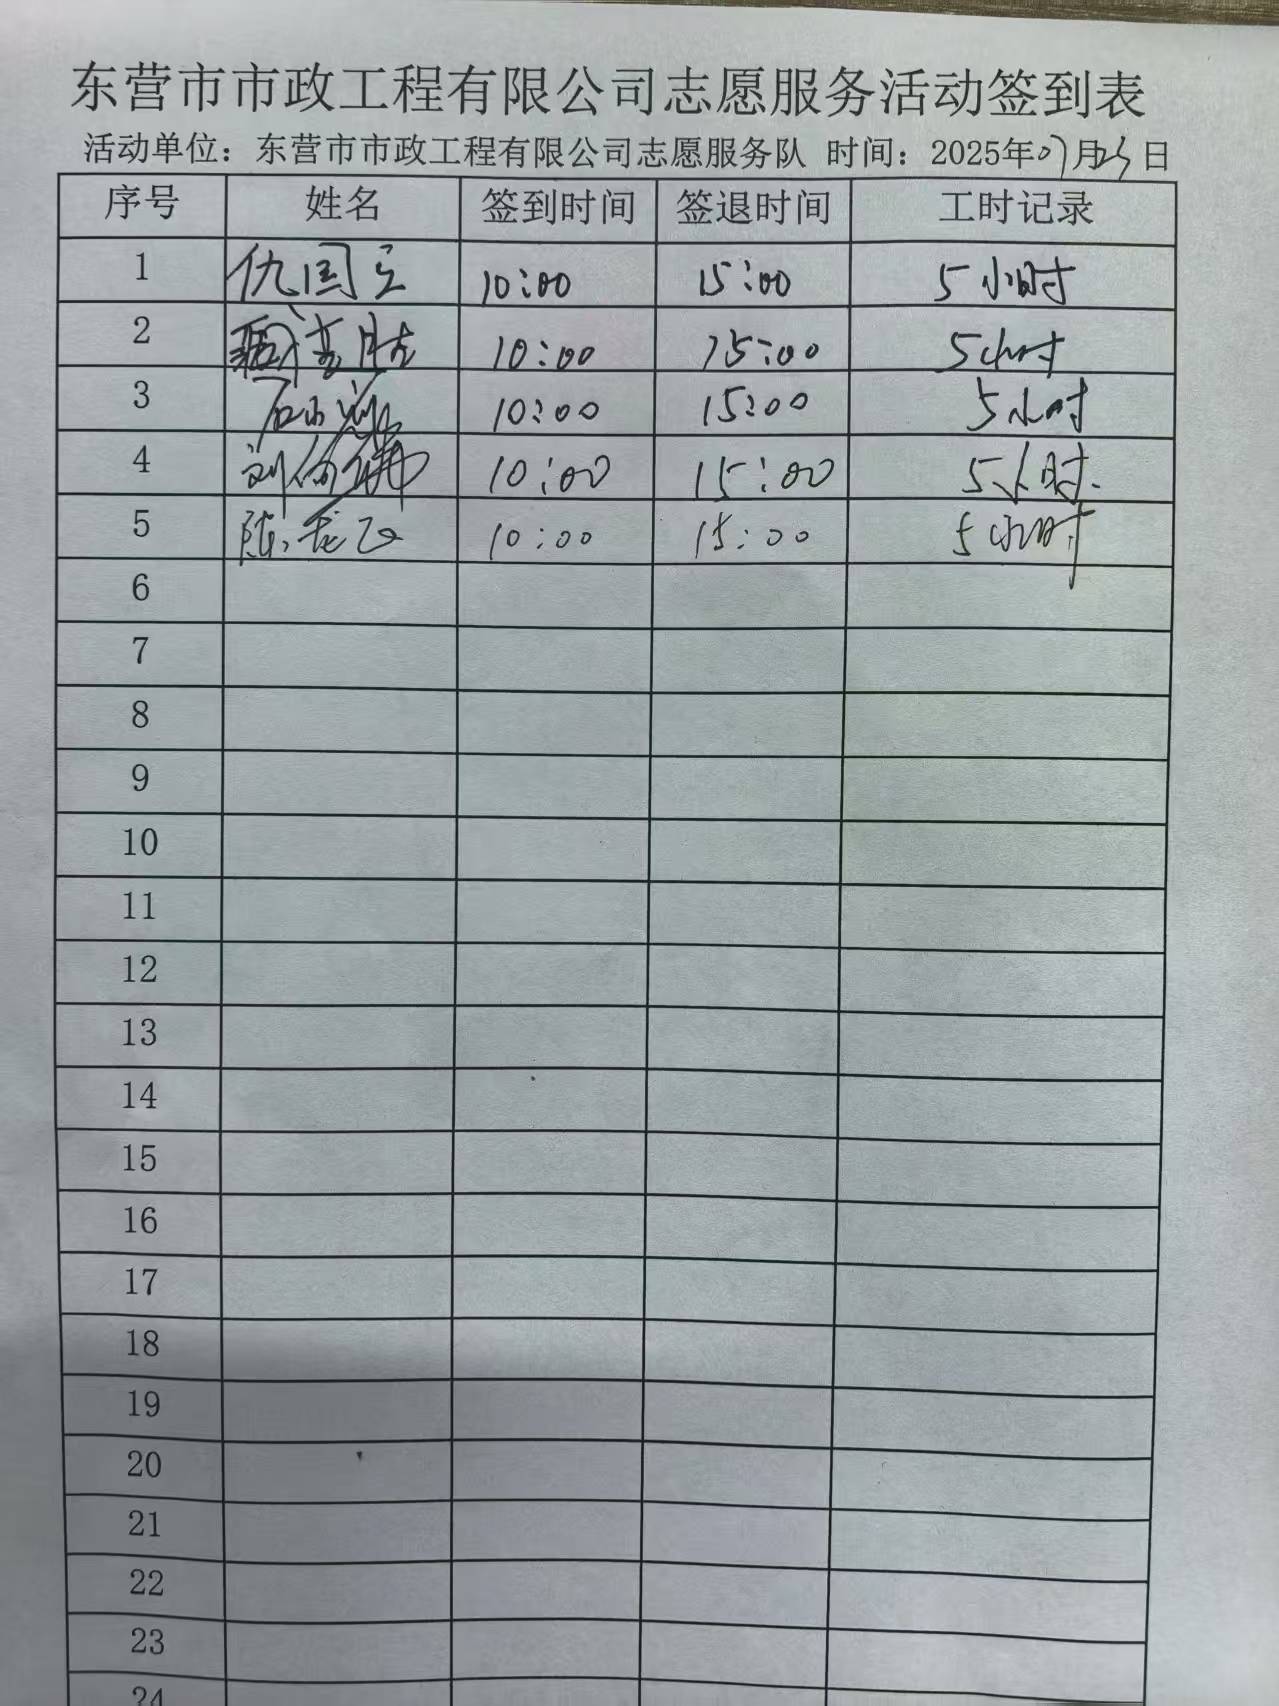 东营市市政工程有限公司志愿服务活动签到表
活动单位：东营市市政工程有限公司志愿服务队 时间：2025年07月23日
序号 姓名 签到时间 签退时间 工时记录
1 仇国 10:00 15:00 5小时
2 10:00 15:00 5小时
3 石 10:00 15:00 5小时
4 刘 10:00 15:00 5小时.
5 陈龙飞 10:00 15:00 5小时
6
7
8
9
10
11
12
13
14
15
16
17
18
19
20
21
22
23
24